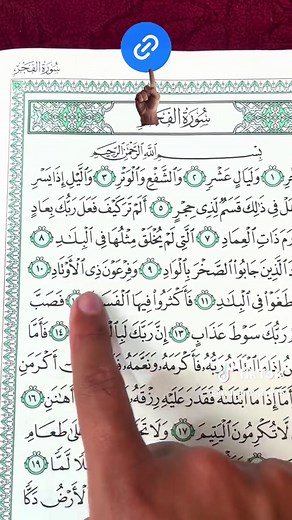 سُورَةُ الفَجْرِ
سُورَةُ الفَـ
بِسْمِ اللَّهِ الرَّحْمَٰنِ الرَّحِيمِ
ـرِ ١ وَلَيَالٍ عَشْرٍ ٢ وَالشَّفْعِ وَالْوَتْرِ ٣ وَاللَّيْلِ إِذَا يَسْرِ
هَلْ فِي ذَٰلِكَ قَسَمٌ لِّذِي حِجْرٍ ٥ أَلَمْ تَرَ كَيْفَ فَعَلَ رَبُّكَ بِعَادٍ
ذَاتِ الْعِمَادِ ٧ الَّتِي لَمْ يُخْلَقْ مِثْلُهَا فِي الْبِلَادِ ٨
الَّذِينَ جَابُوا الصَّخْرَ بِالْوَادِ ٩ وَفِرْعَوْنَ ذِي الْأَوْتَادِ ١٠
طَغَوْا فِي الْبِلَادِ ١١ فَأَكْثَرُوا فِيهَا الْفَسَـ فَصَبَّ
رَبُّكَ سَوْطَ عَذَابٍ ١٣ إِنَّ رَبَّكَ لَبِا ١٤ فَأَمَّا
إِذَا مَا ابْتَلَاهُ رَبُّهُ فَأَكْرَمَهُ وَنَعَّمَهُ فَـ أَكْرَمَنِ
أَمَّا إِذَا مَا ابْتَلَاهُ فَقَدَرَ عَلَيْهِ رِزْقَهُ أَهَانَنِ ١٦
لَّا تُكْرِمُونَ الْيَتِيمَ ١٧ وَلَا تَحَـ عَلَىٰ طَعَامِ
لَّمًّا ١٩
الْأَرْضُ دَكًّا